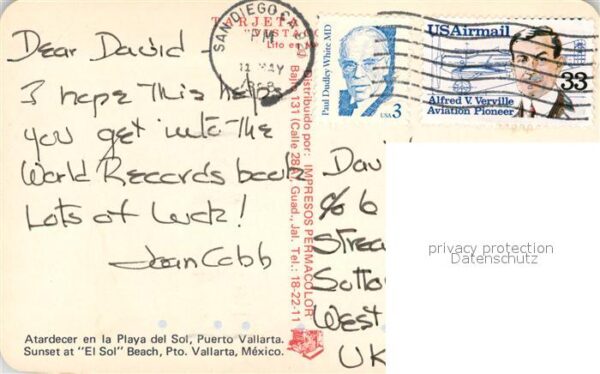 TARJETA
SAN DIEGO CA
PM
11 MAY
Paul Dudley White MD
USA 3
USAirmail
33
Alfred V. Verville
Aviation Pioneer
Dear David -
I hope this helps
you get into the
World Records book
Lots of Luck!
Joan Cobb
Distribuido por: IMPRESOS PERMACOLOR
Bajío 131 (Calle 28A), Guad., Jal. Tel.: 18-22-11
Dav
% 6
Stree
Sutto
West
UK
privacy protection
Datenschutz
Atardecer en la Playa del Sol, Puerto Vallarta.
Sunset at "El Sol" Beach, Pto. Vallarta, México.